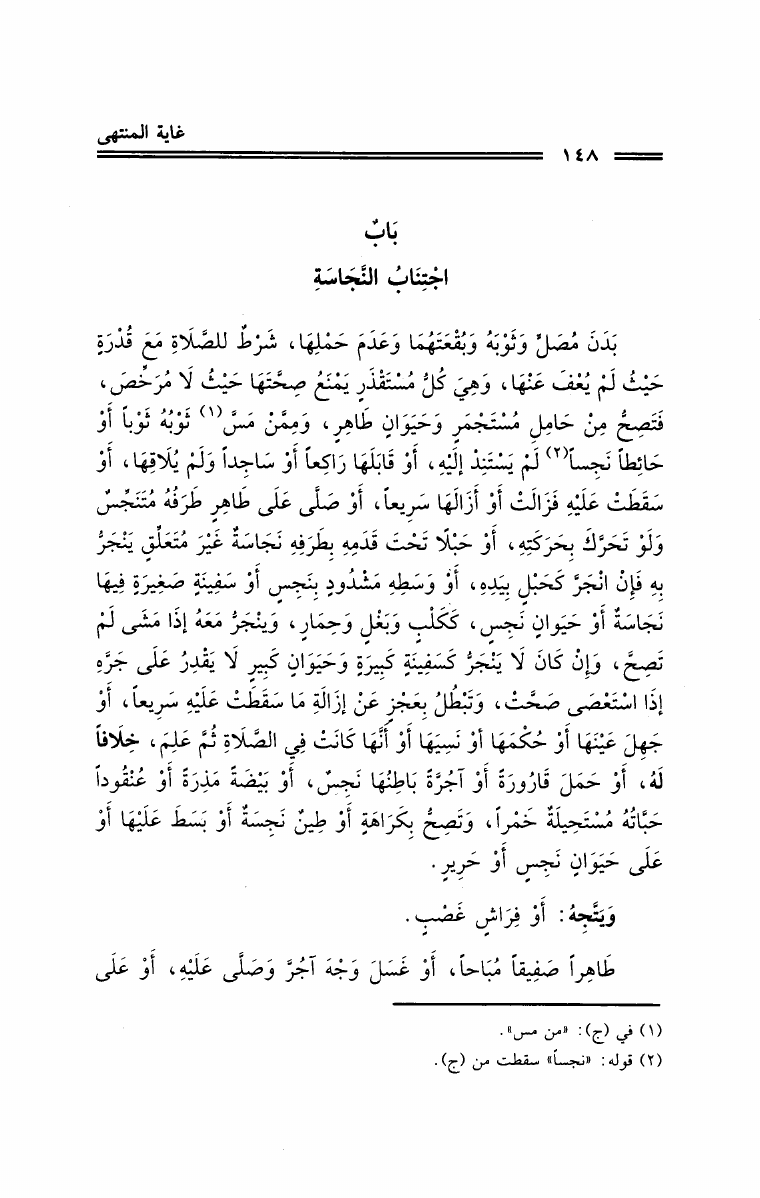 غاية المنتهى
١٤٨
بَابٌ
اجْتِنَابُ النَّجَاسَةِ
بَدَنَ مُصَلٍّ وَثَوْبَهُ وَبُقْعَتَهُمَا وَعَدَمَ حَمْلِهَا، شَرْطٌ للصَّلَاةِ مَعَ قُدْرَةٍ
حَيْثُ لَمْ يُعْفَ عَنْهَا، وَهِيَ كُلُّ مُسْتَقْذَرٍ يَمْنَعُ صِحَّتَهَا حَيْثُ لَا مُرَخِّصَ،
فَتَصِحُّ مِنْ حَامِلِ مُسْتَجْمَرٍ وَحَيَوَانٍ طَاهِرٍ، وَمِمَّنْ مَسَّ(١) ثَوْبُهُ ثَوْباً أَوْ
حَائِطاً نَجِساً(٢) لَمْ يَسْتَنِدْ إلَيْهِ، أَوْ قَابَلَهَا رَاكِعاً أَوْ سَاجِداً وَلَمْ يُلَاقِهَا، أَوْ
سَقَطَتْ عَلَيْهِ فَزَالَتْ أَوْ أَزَالَهَا سَرِيعاً، أَوْ صَلَّى عَلَى طَاهِرٍ طَرَفُهُ مُتَنَجِّسٌ
وَلَوْ تَحَرَّكَ بِحَرَكَتِهِ، أَوْ حَبْلًا تَحْتَ قَدَمِهِ بِطَرَفِهِ نَجَاسَةٌ غَيْرَ مُتَعَلِّقٍ يَنْجَرُّ
بِهِ فَإِنْ انْجَرَّ كَحَبْلٍ بِيَدِهِ، أَوْ وَسَطِهِ مَشْدُودٍ بِنَجِسٍ أَوْ سَفِينَةٍ صَغِيرَةٍ فِيهَا
نَجَاسَةٌ أَوْ حَيَوانٍ نَجِسٍ، كَكَلْبٍ وَبَغْلٍ وَحِمَارٍ، وَيَنْجَرُّ مَعَهُ إذَا مَشَى لَمْ
تَصِحَّ، وَإِنْ كَانَ لَا يَنْجَرُّ كَسَفِينَةٍ كَبِيرَةٍ وَحَيَوَانٍ كَبِيرٍ لَا يَقْدِرُ عَلَى جَرِّهِ
إذَا اسْتَعْصَى صَحَّتْ، وَتَبْطُلُ بِعَجْزٍ عَنْ إزَالَةِ مَا سَقَطَتْ عَلَيْهِ سَرِيعاً، أَوْ
جَهِلَ عَيْنَهَا أَوْ حُكْمَهَا أوْ نَسِيَهَا أَوْ أَنَّهَا كَانَتْ فِي الصَّلَاةِ ثُمَّ عَلِمَ، خِلَافاً
لَهُ، أَوْ حَمَلَ قَارُورَةً أَوْ آجُرَّةً بَاطِنُهَا نَجِسٌ، أَوْ بَيْضَةً مَذِرَةً أَوْ عُنْقُوداً
حَبَّاتُهُ مُسْتَحِيلَةٌ خَمْراً، وَتَصِحُّ بِكَرَاهَةٍ أَوْ طِينٌ نَجِسَةٌ أَوْ بَسَطَ عَلَيْهَا أَوْ
عَلَى حَيَوَانٍ نَجِسٍ أَوْ حَرِيرٍ.
وَيَتَّجِهُ: أَوْ فِرَاشٍ غَصْبٍ.
طَاهِراً صَفِيقاً مُبَاحاً، أَوْ غَسَلَ وَجْهَ آجُرَّ وَصَلَّى عَلَيْهِ، أَوْ عَلَى
(١) في (ج): «من مس».
(٢) قوله: «نجساً» سقطت من (ج).